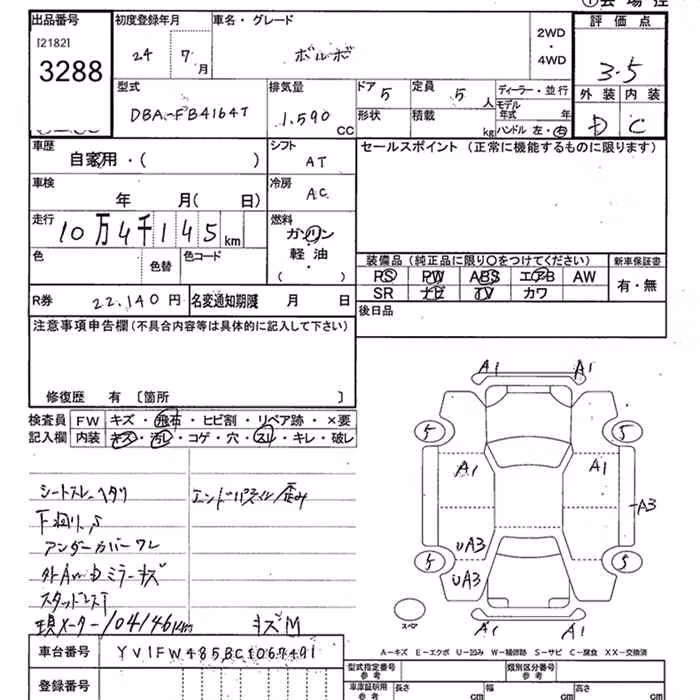 出品番号 初度登録年月 車名・グレード 評価点
[2182] 24 7月 ボルボ 2WD・4WD 3.5
3288
型式 排気量 ドア 5 定員 5人 ディーラー・並行 外装 内装
DBA-FB4164T 1.590 CC 形状 積載 kg モデル年式 年 D C
ハンドル 左・右
車歴 自家用・( ) シフト AT セールスポイント(正常に機能するものに限ります)
車検 年 月( 日) 冷房 AC
走行 10万4千145km 燃料 ガソリン・軽油・( )
色 色替 色コード 装備品(純正品に限り○をつけてください) 新車保証書
PS PW ABS エアB AW 有・無
R券 22,140円 名変通知期限 月 日 SR ナビ TV カワ
注意事項申告欄(不具合内容等は具体的に記入して下さい) 後日品
修復歴 有 [箇所 ]
検査員 FW キズ・飛石・ヒビ割・リペア跡・×要
記入欄 内装 キズ・汚レ・コゲ・穴・スレ・キレ・破レ
A1 A1
5 5
A1 A1
A3
UA3
5 5
UA3
A1 A1
スペア
シートスレ・ヘタリ エンドパネル歪み
下廻りS
アンダーカバーワレ
ミラーキズ
スタッドレス
現メーター104146km キズM
A-キズ E-エクボ U-凹み W-補修跡 S-サビ C-腐食 XX-交換済
車台番号 YV1FW485BC1067491
型式指定番号 参考 類別区分番号 参考
登録番号 車庫証明用 参考 長さ cm 幅 cm 高さ cm